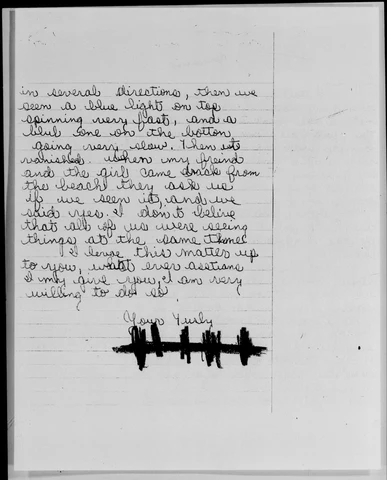 in several directions, then we
seen a blue light on top
spinning very fast, and a
blue one on the botton
going very slow. Then it
vanished. when my freind
and the girl came back from
the beach they ask us
if we seen it, and we
said yes. I don't belive
that all of us were seeing
things at the same time
I leave this matter up
to you, what ever asstione
I may give you, I am very
willing to do so
Your Turly